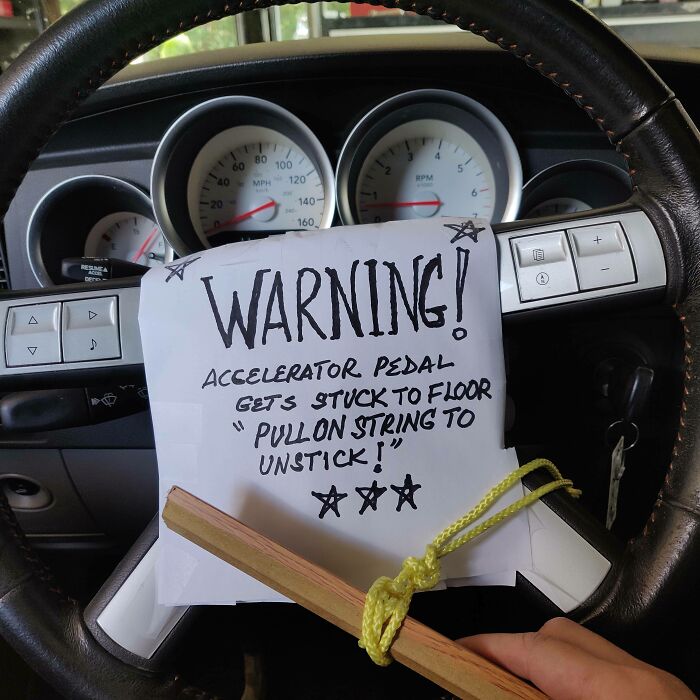 20
40
60
80
100
120
140
160
MPH
RPM
1
2
3
4
5
6
7
RESUME
ACCEL
DECEL
WARNING!
ACCELERATOR PEDAL
GETS STUCK TO FLOOR
" PULL ON STRING TO
UNSTICK! "